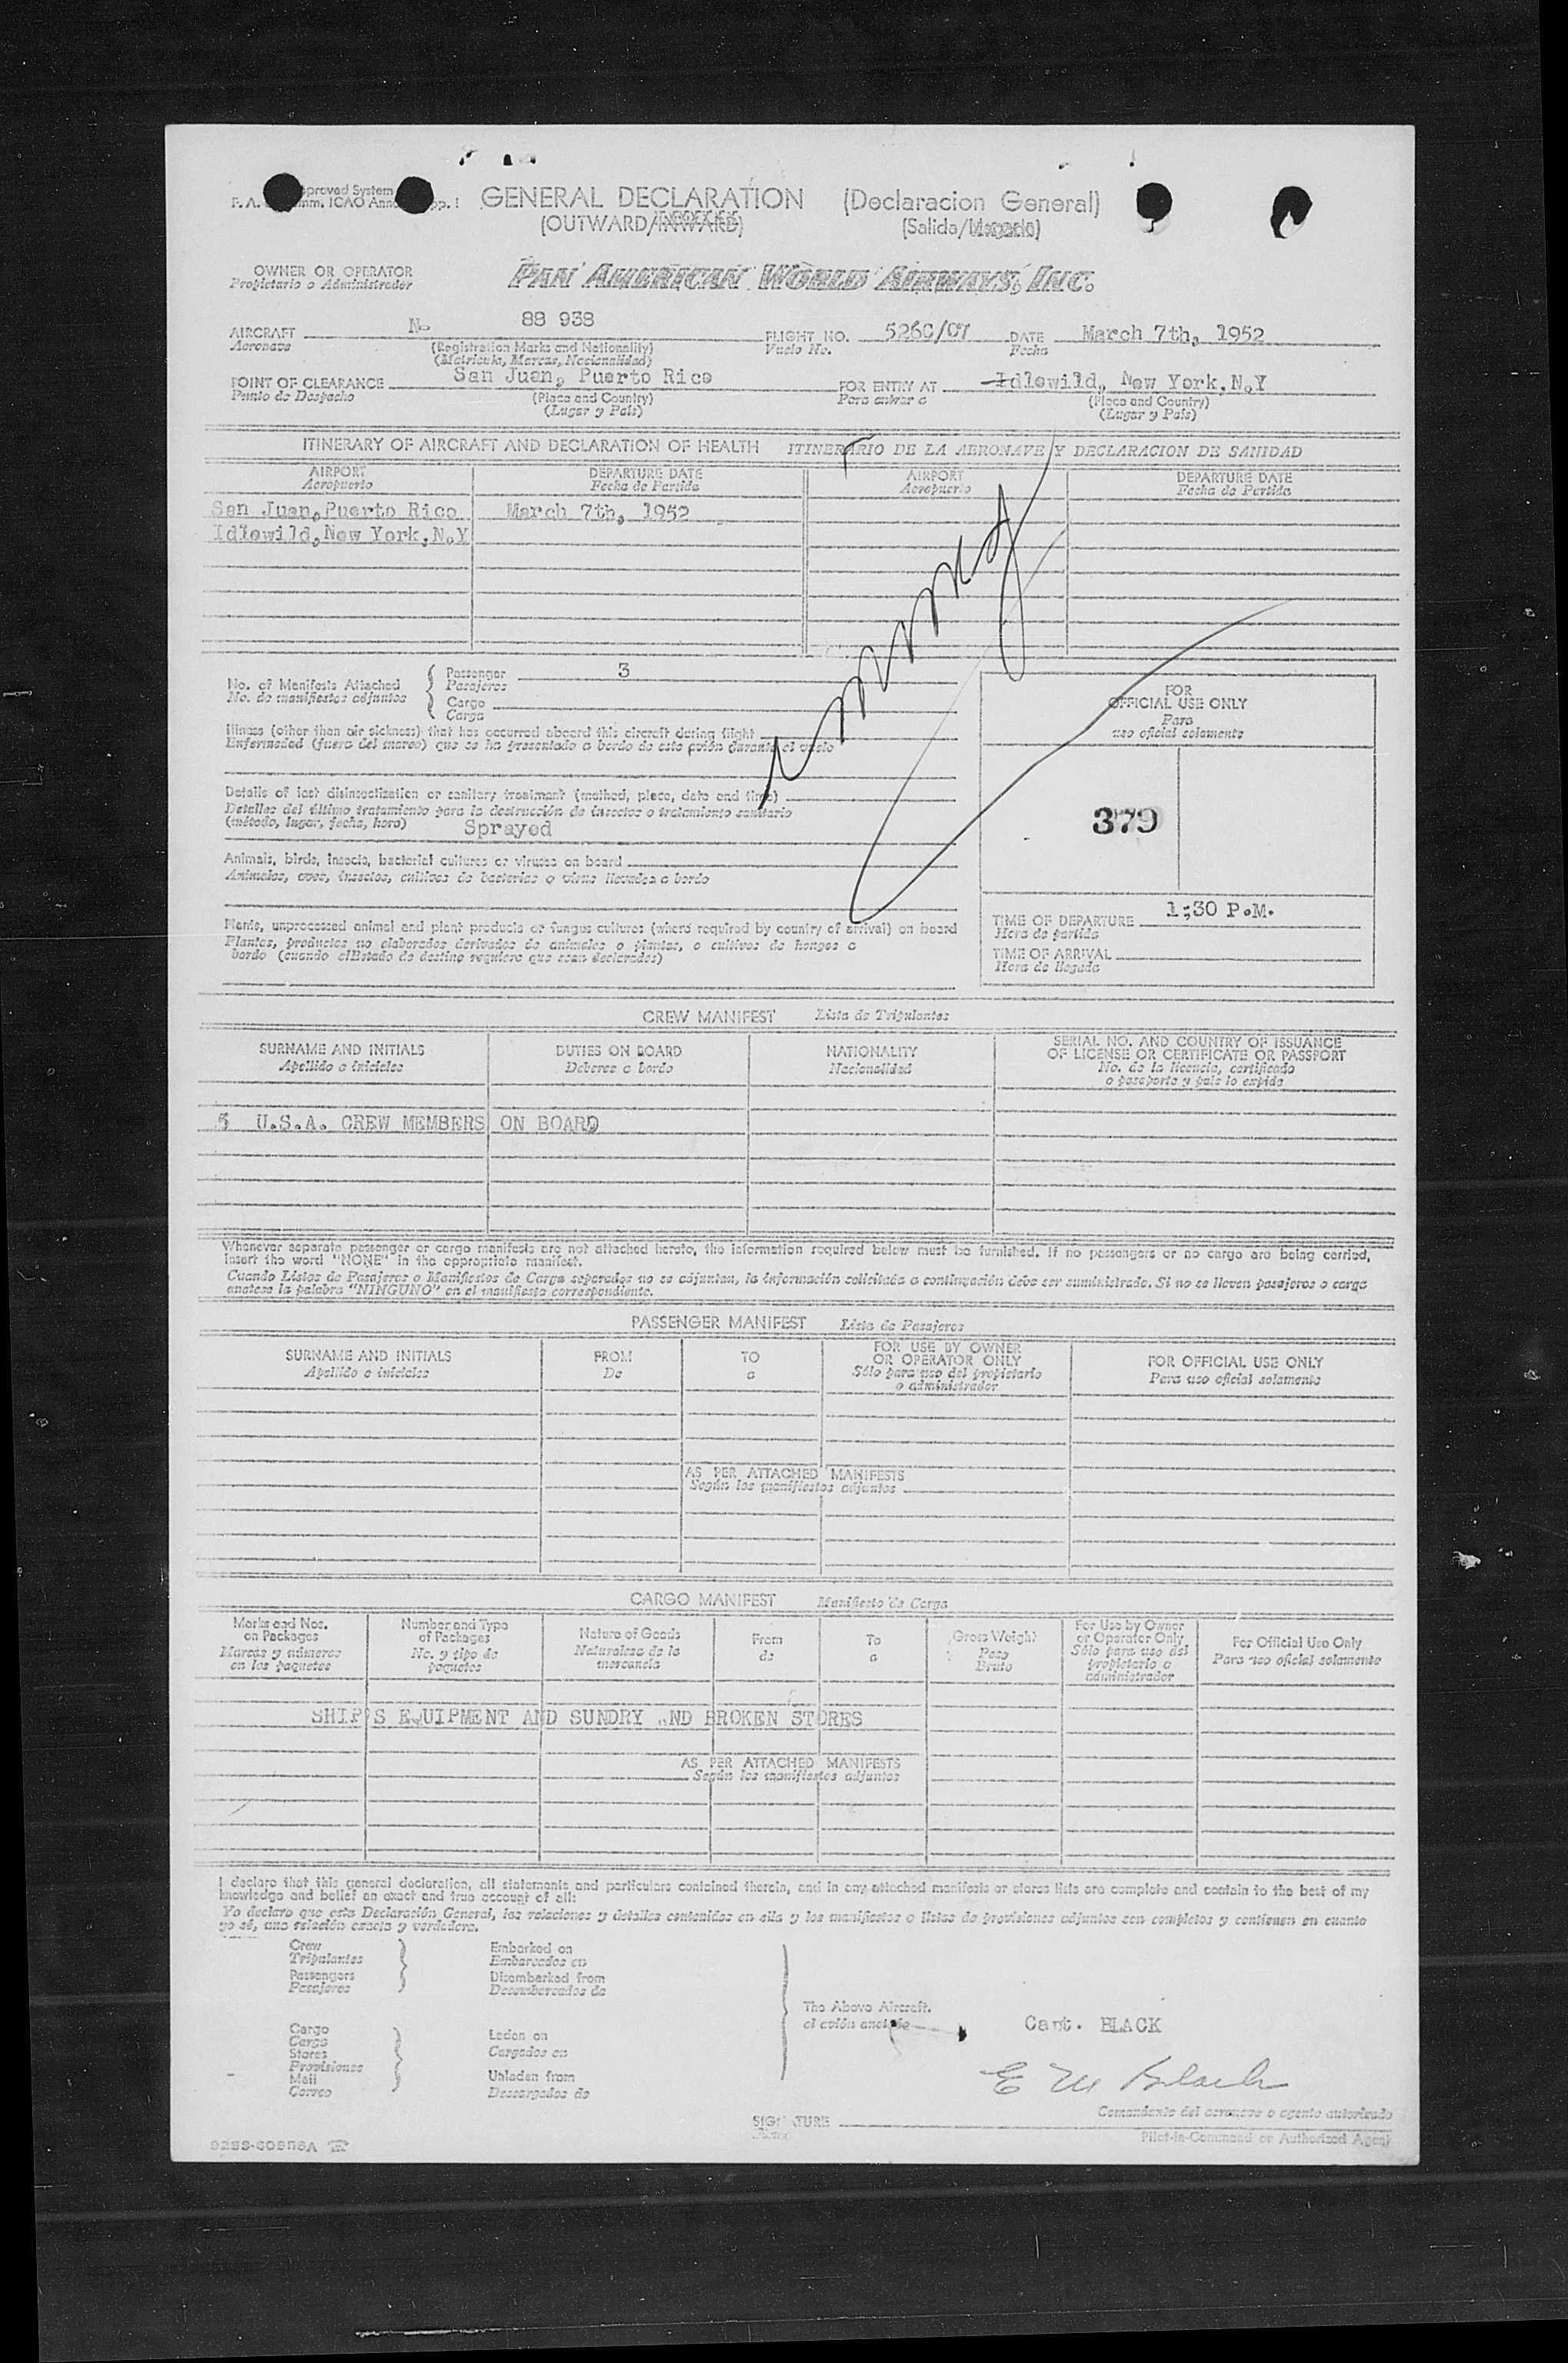 GENERAL DECLARATION (Declaracion General)
(OUTWARD/INWARD) (Salida/
OWNER OR OPERATOR
Propietario o Administrador
PAN AMERICAN WORLD AIRWAYS, INC.
AIRCRAFT N- 88 938 FLIGHT NO. 526C/07 DATE March 7th, 1952
Aeronave (Registration Marks and Nationality) Vuelo No. Fecha
(Matricula, Marcas, Nacionalidad)
POINT OF CLEARANCE San Juan, Puerto Rico FOR ENTRY AT Idlewild, New York, N.Y
Punto de Despacho (Place and Country) Para entrar a (Place and Country)
(Lugar y País) (Lugar y País)
ITINERARY OF AIRCRAFT AND DECLARATION OF HEALTH ITINERARIO DE LA AERONAVE Y DECLARACION DE SANIDAD
AIRPORT DEPARTURE DATE AIRPORT DEPARTURE DATE
Aeropuerto Fecha de Partida Aeropuerto Fecha de Partida
San Juan, Puerto Rico March 7th, 1952
Idlewild, New York, N.Y
No. of Manifests Attached
No. de manifiestos adjuntos
Passenger 3
Pasajeros
Cargo
Carga
Illness (other than air sickness) that has occurred aboard this aircraft during flight
Enfermedad (fuera del mareo) que se ha presentado a bordo de este avión durante el vuelo
Details of last disinsectization or sanitary treatment (method, place, date and time)
Detalles del último tratamiento para la destrucción de insectos o tratamiento sanitario
(método, lugar, fecha, hora) Sprayed
Animals, birds, insects, bacterial cultures or viruses on board
Animales, aves, insectos, cultivos de bacterias o virus llevados a bordo
Plants, unprocessed animal and plant products or fungus cultures (where required by country of arrival) on board
Plantas, productos no elaborados derivados de animales o plantas, o cultivos de hongos a
bordo (cuando el Estado de destino requiera que sean declarados)
FOR
OFFICIAL USE ONLY
Para
uso oficial solamente
379
TIME OF DEPARTURE 1;30 P.M.
Hora de partida
TIME OF ARRIVAL
Hora de llegada
CREW MANIFEST Lista de Tripulantes
SURNAME AND INITIALS DUTIES ON BOARD NATIONALITY SERIAL NO. AND COUNTRY OF ISSUANCE
OF LICENSE OR CERTIFICATE OR PASSPORT
Apellido e iniciales Deberes a bordo Nacionalidad No. de la licencia, certificado
o pasaporte y país lo expide
5 U.S.A. CREW MEMBERS ON BOARD
Whenever separate passenger or cargo manifests are not attached hereto, the information required below must be furnished. If no passengers or no cargo are being carried,
insert the word "NONE" in the appropriate manifest.
Cuando Listas de Pasajeros o Manifiestos de Carga separados no se adjuntan, la información solicitada a continuación debe ser suministrada. Si no se lleven pasajeros o carga
anotese la palabra "NINGUNO" en el manifiesto correspondiente.
PASSENGER MANIFEST Lista de Pasajeros
SURNAME AND INITIALS FROM TO FOR USE BY OWNER
OR OPERATOR ONLY FOR OFFICIAL USE ONLY
Apellido e iniciales De a Sólo para uso del propietario
o administrador Para uso oficial solamente
AS PER ATTACHED MANIFESTS
Según los manifiestos adjuntos
CARGO MANIFEST Manifiesto de Carga
Marks and Nos.
on Packages
Marcas y números
en los paquetes
Number and Type
of Packages
No. y tipo de
paquetes
Nature of Goods
Naturaleza de la
mercancía
From
de
To
a
Gross Weight
Peso
Bruto
For Use by Owner
or Operator Only
Sólo para uso del
propietario o
administrador
For Official Use Only
Para uso oficial solamente
SHIP'S EQUIPMENT AND SUNDRY AND BROKEN STORES
AS PER ATTACHED MANIFESTS
Según los manifiestos adjuntos
I declare that this general declaration, all statements and particulars contained therein, and in any attached manifests or stores lists are complete and contain to the best of my
knowledge and belief an exact and true account of all:
Yo declaro que esta Declaración General, las relaciones y detalles contenidos en ella y los manifiestos o listas de provisiones adjuntos son completos y contienen en cuanto
yo sé, una relación exacta y verdadera.
Crew
Tripulantes
Passengers
Pasajeros
Embarked on
Embarcados en
Disembarked from
Desembarcados de
Cargo
Carga
Stores
Provisiones
Mail
Correo
Laden on
Cargados en
Unladen from
Descargados de
The Above Aircraft.
el avión
Capt. BLACK
E M Black
SIGNATURE
Comandante del aeronave o agente autorizado
Pilot-in-Command or Authorized Agent